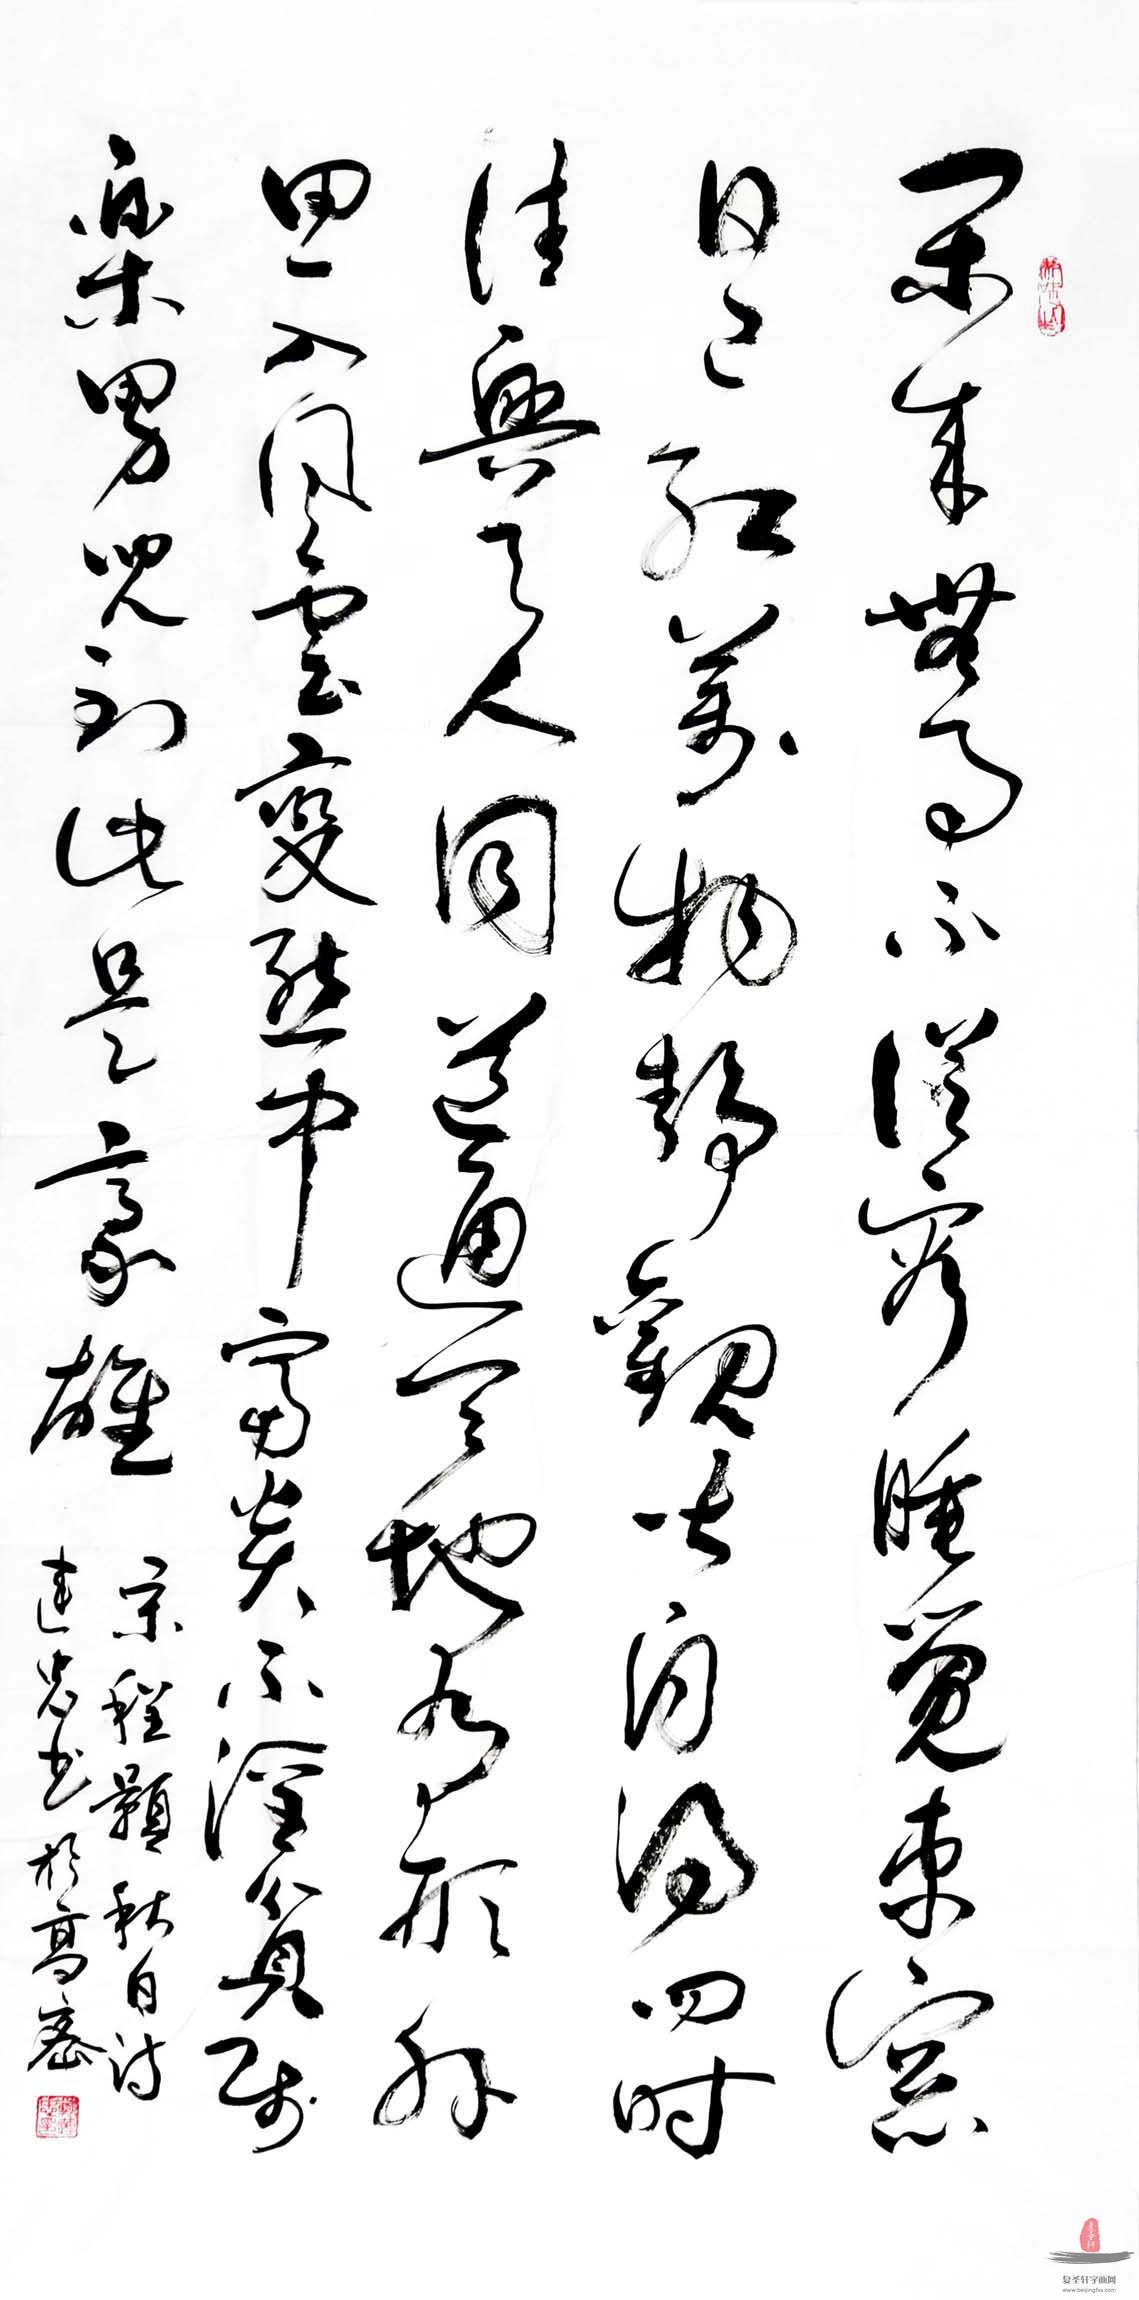 閒來無事不從容睡覺東窓
日已紅萬物靜觀皆自得四时
佳興与人同道通天地有形外
思入風雲變態中富貴不淫貧賤
樂男兒到此是豪雄
宋程顥秋日诗
建忠书於高密
复圣轩字画网
www.beijingfsx.com